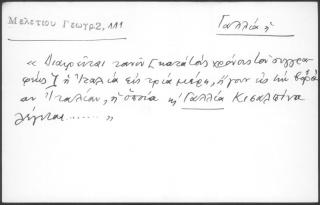 Μελετίου Γεωγρ 2, 111
Γαλλία ἡ
« Διαιρεῖται τανῦν [κατὰ τοὺς χρόνους τοῦ συγγρα-
φέως] ἡ Ἰταλία εἰς τρία μέρη, ἤγουν εἰς τὴν
αν Ἰταλίαν, ἡ ὁποία κ Γαλλία Κισαλπίνα
λέγεται....... »